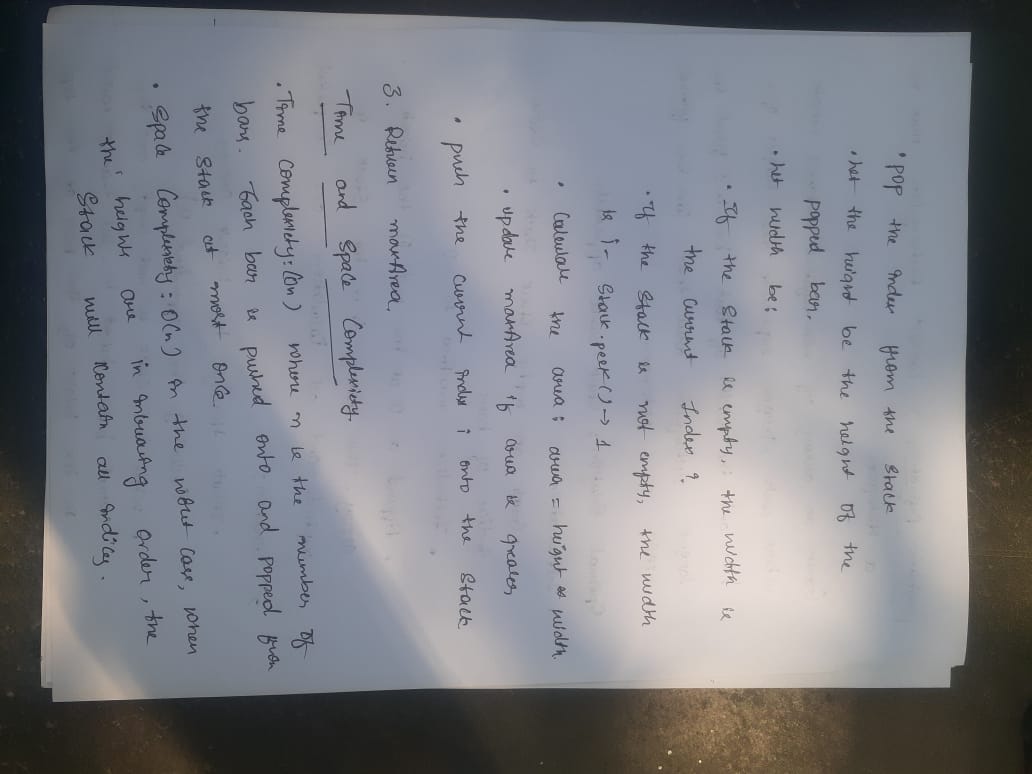 • pop the index from the stack
• Let the height be the height of the
popped bar.
• Let width be:
• If the stack is empty, the width is
the current Index i
• if the stack is not empty, the width
is i - stack.peek() - 1
• Calculate the area: area = height * width.
• update maxArea if area is greater,
• push the current index i onto the stack
3. Return maxArea.
Time and Space Complexity.
• Time Complexity: (On) where n is the number of
bars. Each bar is pushed onto and popped from
the stack at most once.
• Space Complexity: O(n) in the worst case, when
the height are in increasing order, the
Stack will contain all indices.